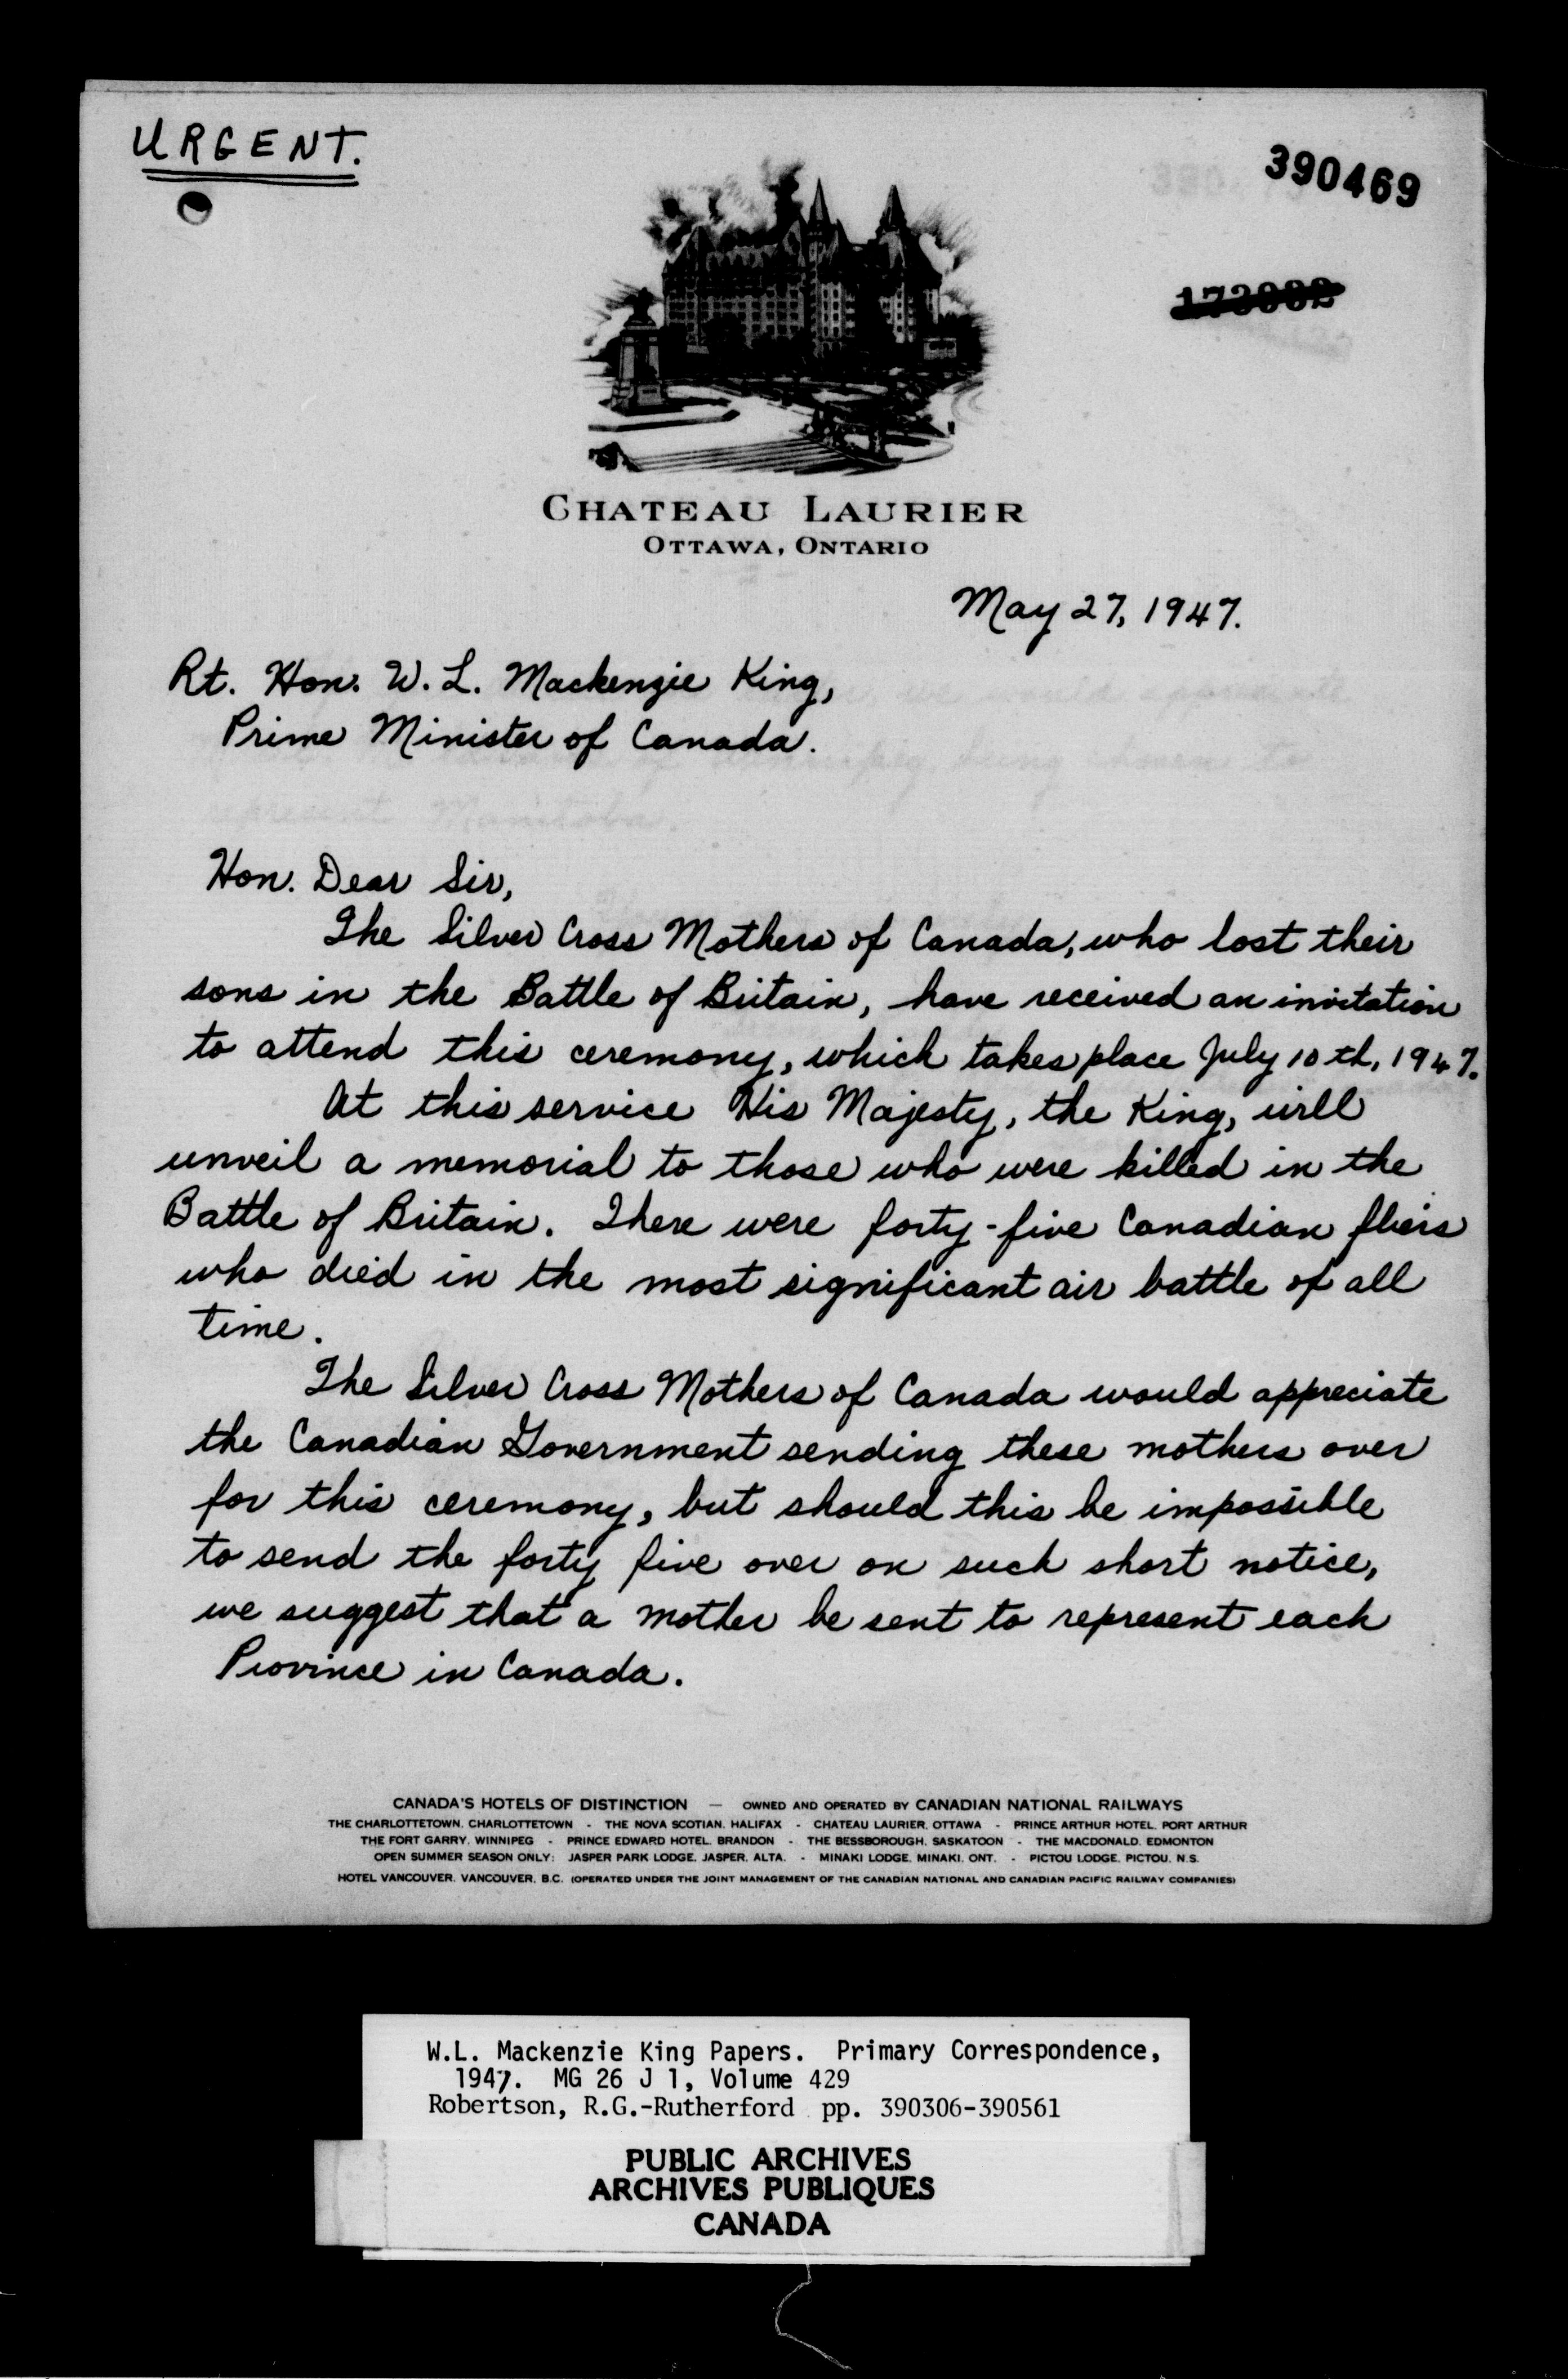 URGENT.
390469
CHATEAU LAURIER
OTTAWA, ONTARIO
May 27, 1947.
Rt. Hon. W. L. Mackenzie King,
Prime Minister of Canada.
Hon. Dear Sir,
The Silver Cross Mothers of Canada, who lost their
sons in the Battle of Britain, have received an invitation
to attend this ceremony, which takes place July 10th, 1947.
At this service His Majesty, the King, will
unveil a memorial to those who were killed in the
Battle of Britain. There were forty-five Canadian fliers
who died in the most significant air battle of all
time.
The Silver Cross Mothers of Canada would appreciate
the Canadian Government sending these mothers over
for this ceremony, but should this be impossible
to send the forty five over on such short notice,
we suggest that a mother be sent to represent each
Province in Canada.
CANADA'S HOTELS OF DISTINCTION — OWNED AND OPERATED BY CANADIAN NATIONAL RAILWAYS
THE CHARLOTTETOWN, CHARLOTTETOWN - THE NOVA SCOTIAN, HALIFAX - CHATEAU LAURIER, OTTAWA - PRINCE ARTHUR HOTEL, PORT ARTHUR
THE FORT GARRY, WINNIPEG - PRINCE EDWARD HOTEL, BRANDON - THE BESSBOROUGH, SASKATOON - THE MACDONALD, EDMONTON
OPEN SUMMER SEASON ONLY: JASPER PARK LODGE, JASPER, ALTA. - MINAKI LODGE, MINAKI, ONT. - PICTOU LODGE, PICTOU, N.S.
HOTEL VANCOUVER, VANCOUVER, B.C. (OPERATED UNDER THE JOINT MANAGEMENT OF THE CANADIAN NATIONAL AND CANADIAN PACIFIC RAILWAY COMPANIES)
W.L. Mackenzie King Papers. Primary Correspondence,
1947. MG 26 J 1, Volume 429
Robertson, R.G.-Rutherford pp. 390306-390561
PUBLIC ARCHIVES
ARCHIVES PUBLIQUES
CANADA